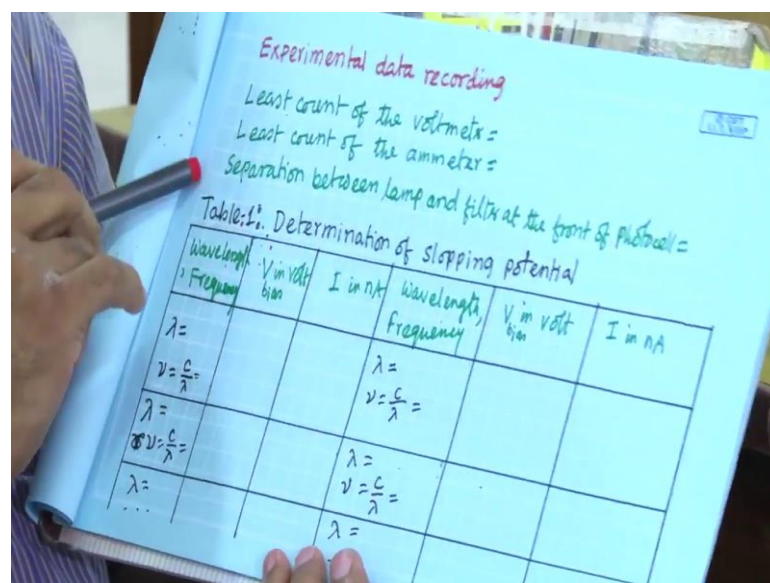 Experimental data recording
Least count of the voltmetr =
Least count of the ammeter =
Separation between lamp and filter at the front of photocell =
Table:1: Determination of slopping potential
Wavelength, Frequency V bias in volt I in nA Wavelength, frequency V bias in volt I in nA
λ = λ =
ν = c/λ = ν = c/λ =
λ = λ =
ν = c/λ = ν = c/λ =
λ = λ =
...